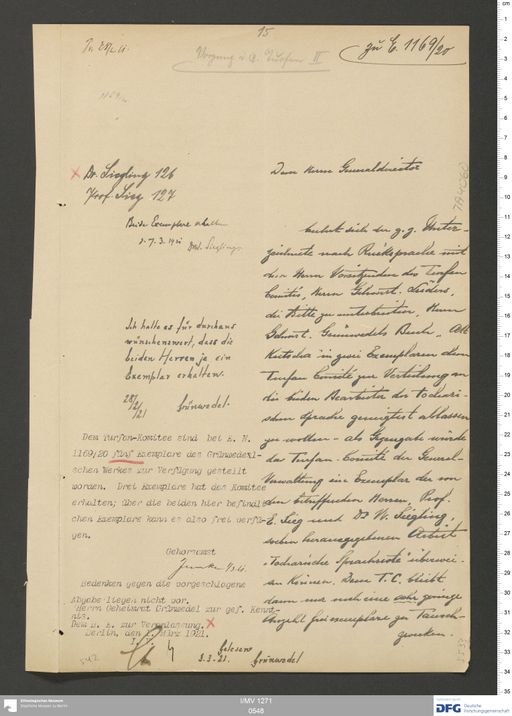 15
zu E. 1169/20
Vorgang d. A. Turfan II
Dr. Siegling 126
Prof. Sieg 127
Beide Exemplare erhalten
d. 7.3.1921
Dr. W. Siegling
Ich halte es für durchaus
wünschenswert, dass die
beiden Herren je ein
Exemplar erhalten.
28/2/21 Grünwedel.
Dem Turfan-Komitee sind bei E. N.
1169/20 fünf Exemplare des Grünwedel-
schen Werkes zur Verfügung gestellt
worden. Drei Exemplare hat das Komitee
erhalten; über die beiden hier befindli
chen Exemplare kann es also frei verfü-
gen.
Gehorsamst
Bedenken gegen die vorgeschlagene
Abgabe liegen nicht vor.
Herrn Geheimrat Grünwedel zur gef. Kennt-
nis.
Dem E. B. zur Veranlassung.
Berlin, den 2. März 1921.
gelesen
3.3.21. Grünwedel
Dem Herrn Generaldirector
beehrt sich der g. g. Unter-
zeichnete nach Rücksprache mit
dem Herrn Vorsitzenden des Turfan
Comités, Herrn Geheimrt. Lüders,
die Bitte zu unterbreiten, Herrn
Geheimrt. Grünwedels Buch „Alt
Kutscha in zwei Exemplaren dem
Turfan Comité zur Verteilung an
die beiden Bearbeiter der tochari-
schen Sprache geneigtest ablassen
zu wollen - als Gegengabe würde
das Turfan-Comité der General-
Verwaltung ein Exemplar der von
den betreffenden Herren, Prof.
E. Sieg und Dr W. Siegling,
soeben herausgegebenen Arbeit
„Tocharische Sprachreste" überwei-
sen können. Dem T.C. bleibt
dann nur noch eine sehr geringe
Anzahl freiexemplare zu Tausch-
zwecken.
TA 4662
Ethnologisches Museum
Staatliche Museen zu Berlin
I/MV 1271
0548
DFG Deutsche
Forschungsgemeinschaft